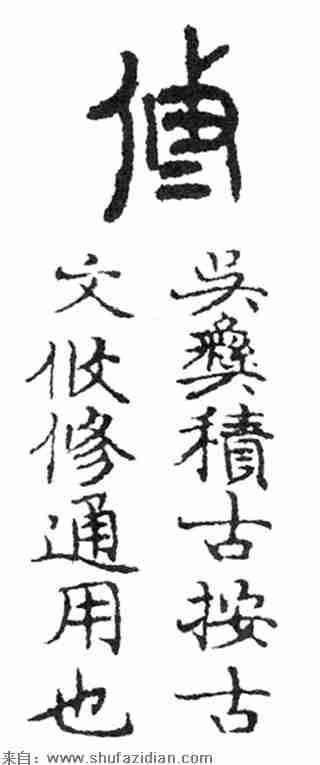 吳彝積古按古
文攸修通用也
来自：www.shufazidian.com